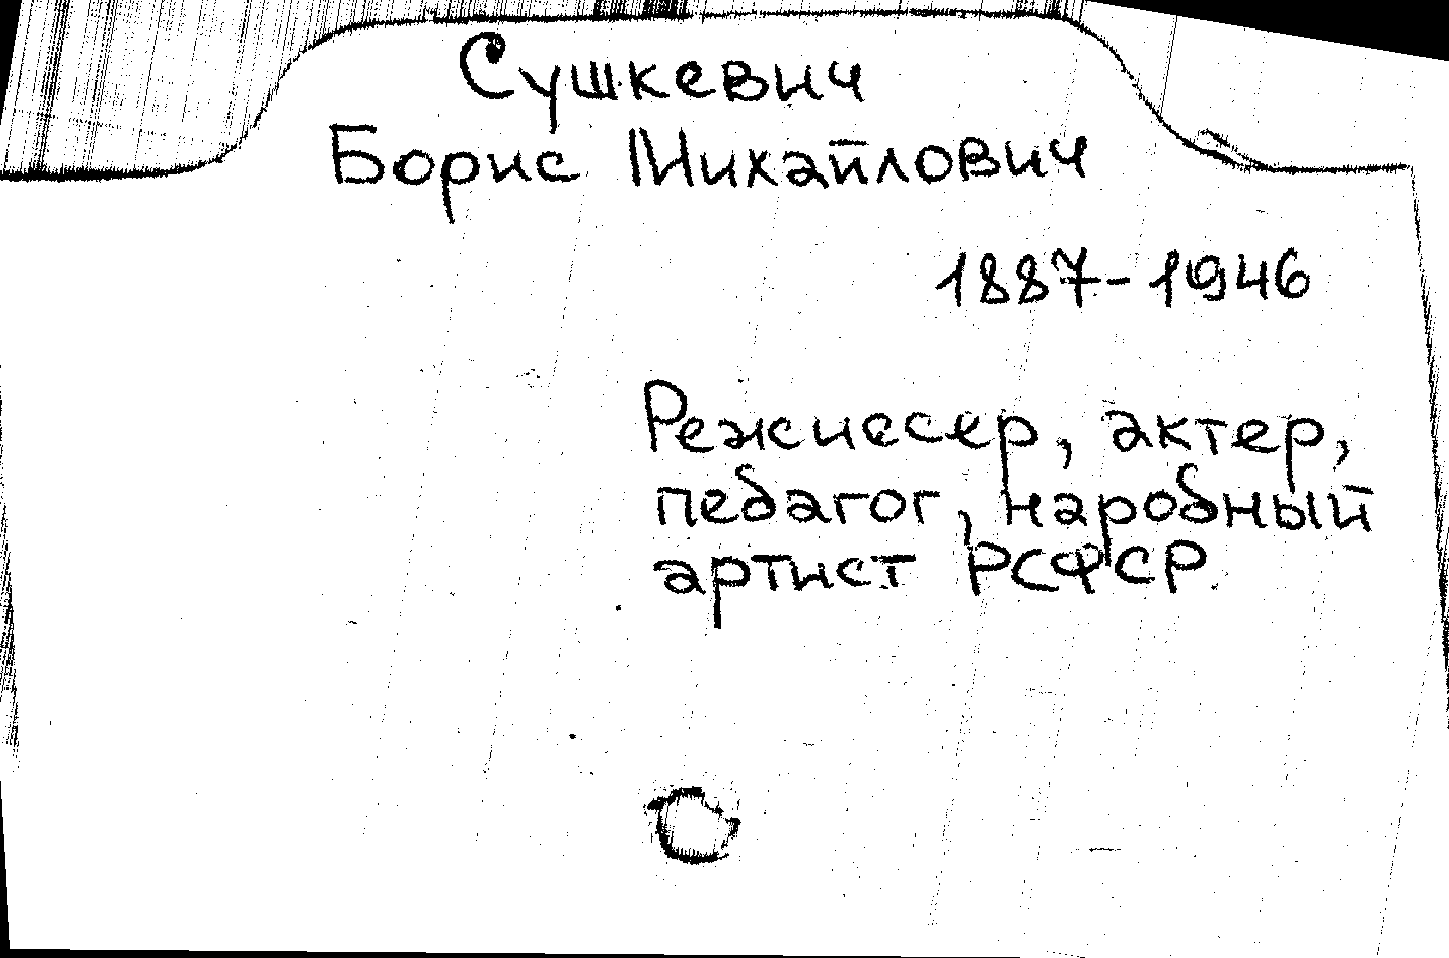 Сушкевич
Борис Михайлович
1887-1946
Режиссер, актер,
педагог, народный
артист РСФСР